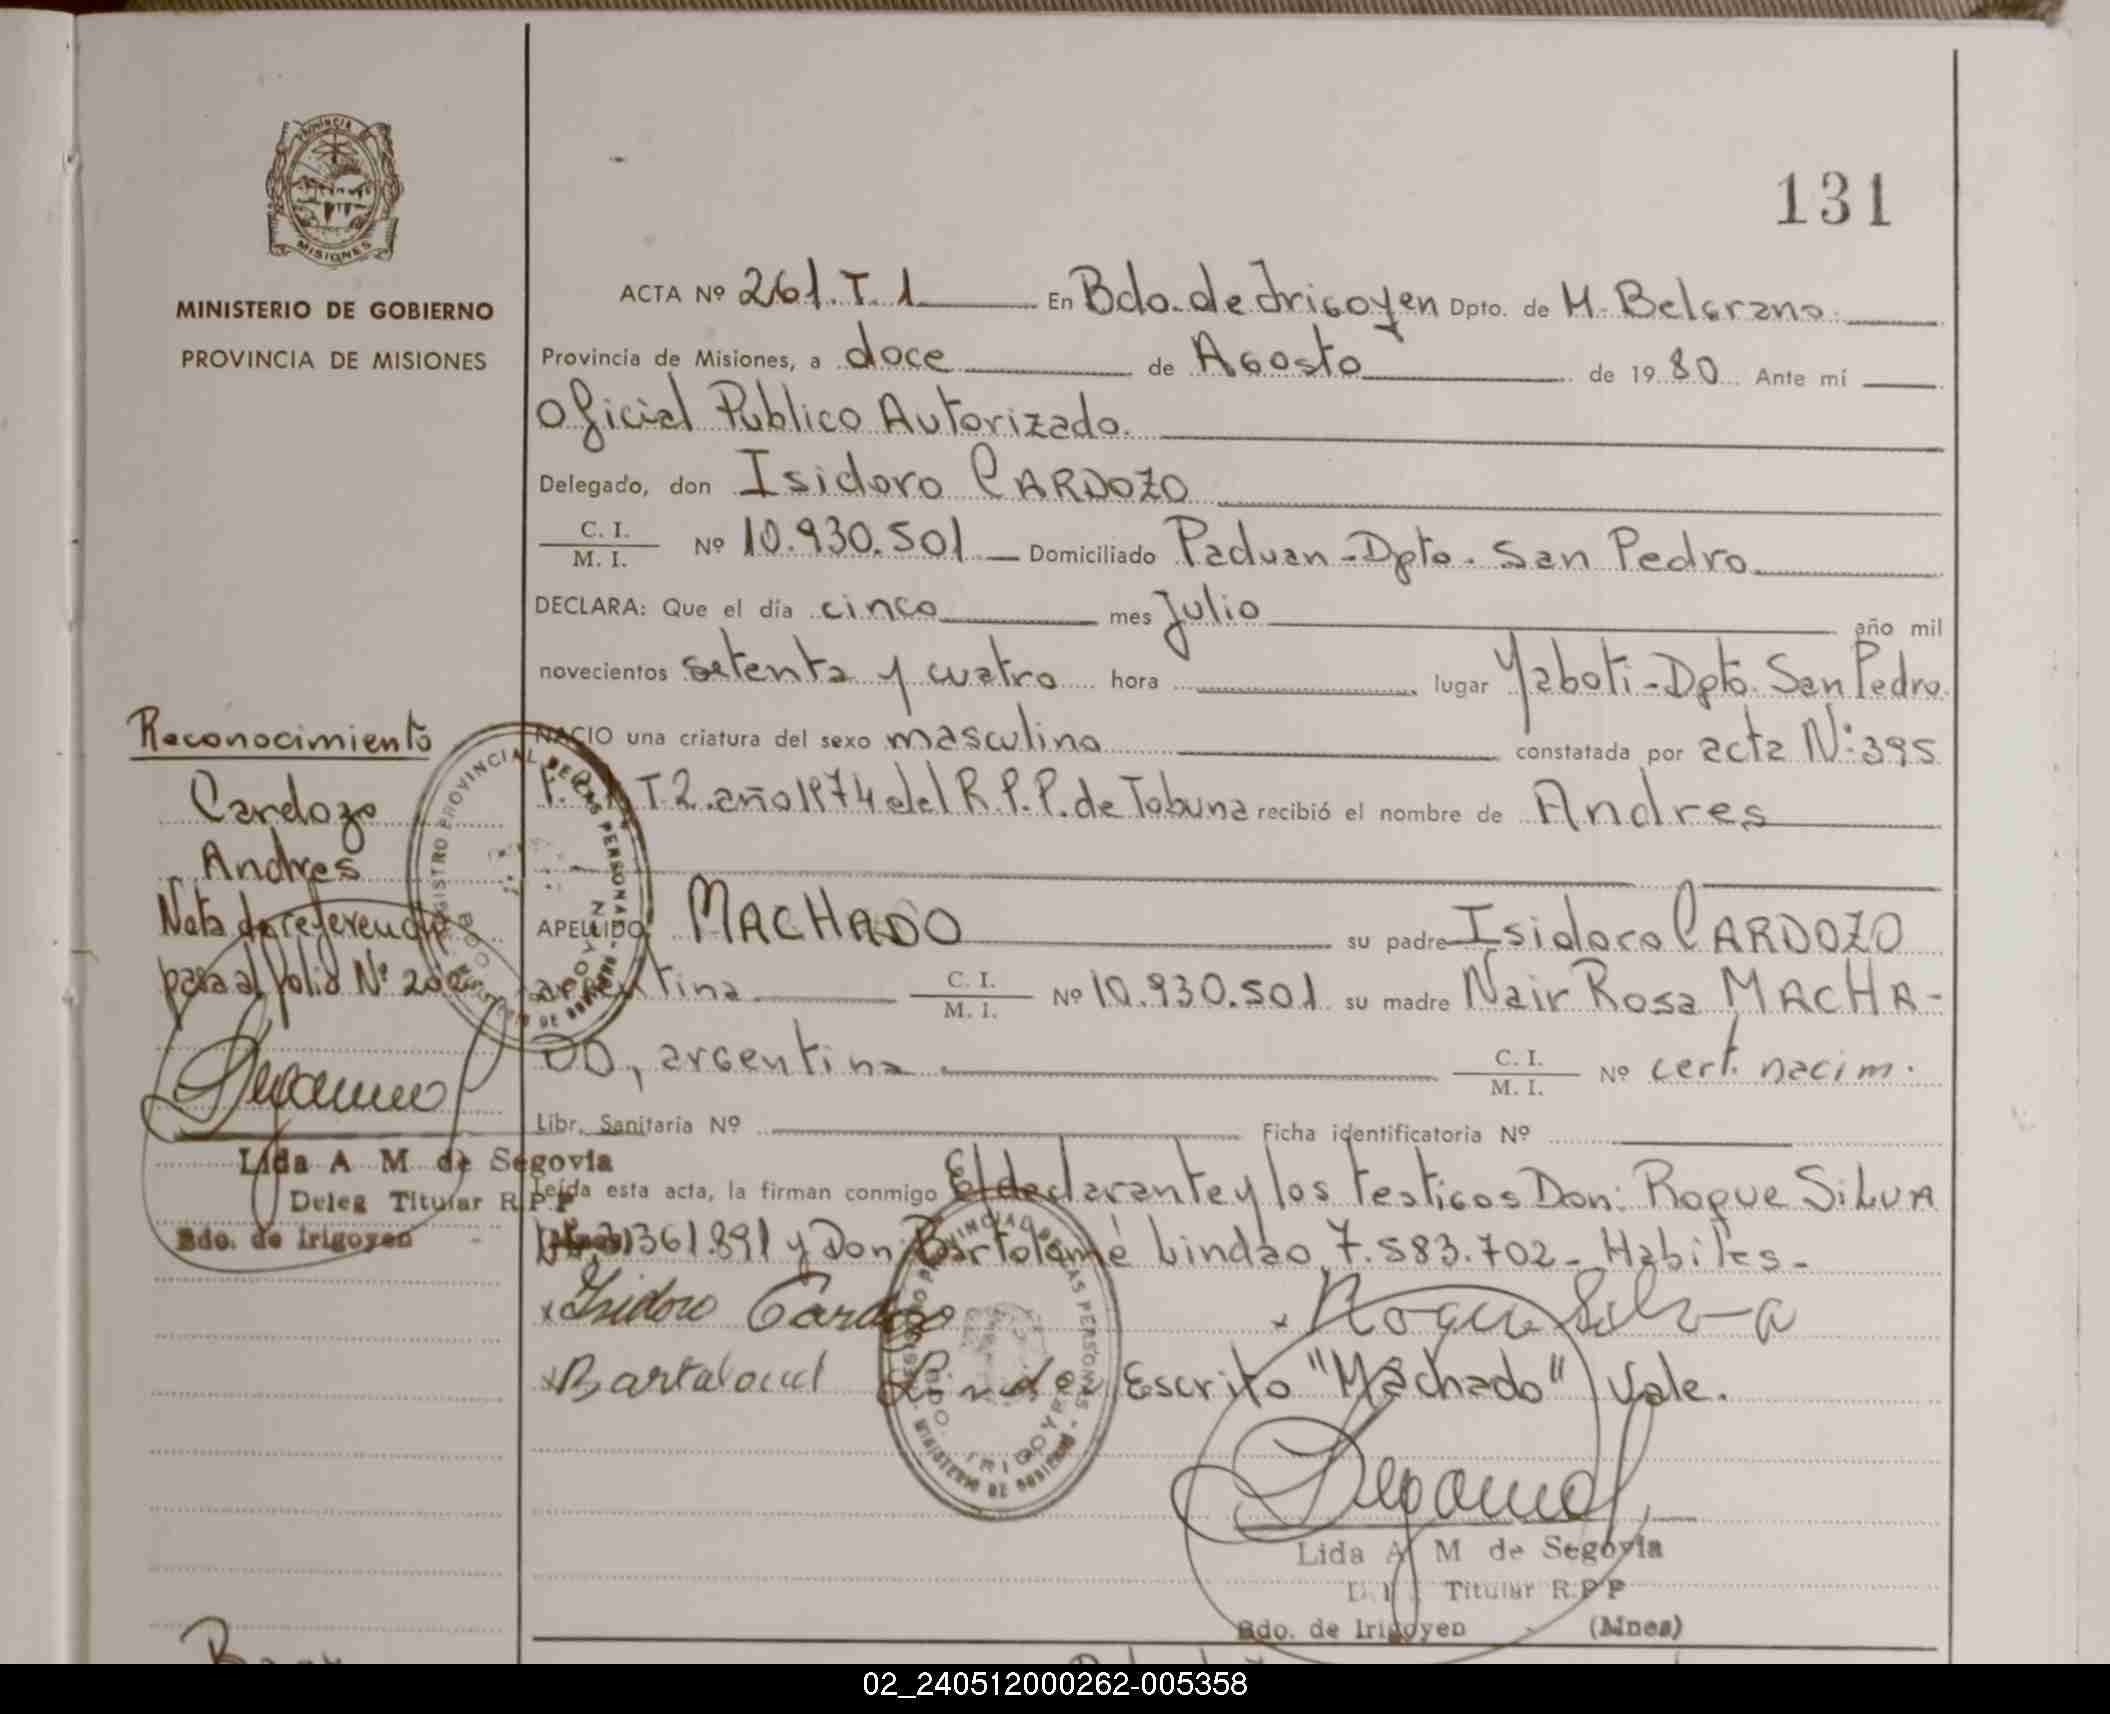 PROVINCIA DE
MISIONES
MINISTERIO DE GOBIERNO
PROVINCIA DE MISIONES
131
ACTA Nº 261. T. 1 En Bdo. de Irigoyen Dpto. de M. Belgrano.
Provincia de Misiones, a doce de Agosto de 1980 Ante mí
Oficial Publico Autorizado.
Delegado, don Isidoro CARDOZO
C. I.
M. I. Nº 10.930.501 Domiciliado Paduan - Dpto. San Pedro
DECLARA: Que el día cinco mes Julio año mil
novecientos setenta y cuatro hora lugar Yaboti - Dpto. San Pedro.
NACIO una criatura del sexo masculino constatada por acta Nº 395
T.2. año 1974 del R.P.P. de Tobuna recibió el nombre de Andres
APELLIDO MACHADO su padre Isidoro CARDOZO
argentina C. I. M. I. Nº 10.930.501 su madre Nair Rosa MACHA-
DO, argentina C. I. M. I. Nº cert. nacim.
Libr. Sanitaria Nº Ficha identificatoria Nº
Leída esta acta, la firman conmigo El declarante y los testigos Don: Roque SILVA
361.891 y Don Bartolomé Lindao 7.583.702 - Habiles -
x Isidoro Cardozo x Roque Silva
x Escrito "Machado" Vale.
Lida A M de Segovia
Titular R.P.P
Bdo. de Irigoyen (Mnes)
Reconocimiento
Cardozo
Andres
Nota de referencia
pasa al folio Nº
Lida A M de Segovia
Deleg Titular R.P.P
Bdo. de Irigoyen
REGISTRO PROVINCIAL DE LAS PERSONAS - MINISTERIO DE GOBIERNO
BDO. IRIGOYEN
REGISTRO PROVINCIAL DE LAS PERSONAS - MINISTERIO DE GOBIERNO
BDO. IRIGOYEN
02_240512000262-005358